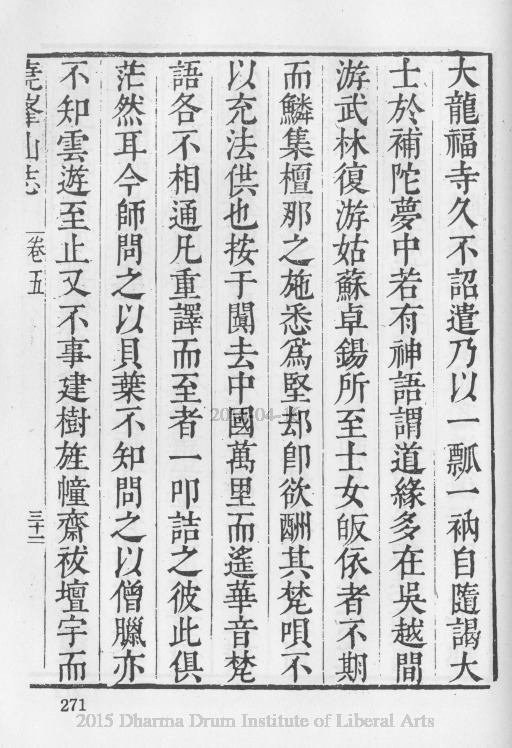 大龍福寺久不詔遣乃以一瓢一衲自隨謁大
士於補陀夢中若有神語謂道緣多在吳越間
游武林復游姑蘇卓錫所至士女皈依者不期
而鱗集檀那之施悉爲堅却卽欲酬其梵唄不
以充法供也按于闐去中國萬里而遙華音梵
語各不相通凡重譯而至者一叩詰之彼此俱
茫然耳今師問之以貝葉不知問之以僧臘亦
不知雲遊至止又不事建樹旌幢齋祓壇宇而
堯峯山志
卷五
三十二
271
2015 Dharma Drum Institute of Liberal Arts